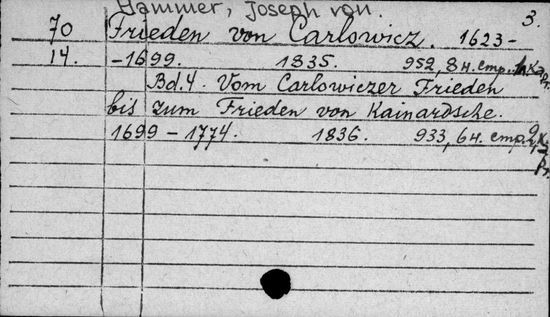 Hammer, Joseph von
3.
70 Frieden von Carlowicz. 1623-
14. -1699. 1835. 952, 8 н. стр.
Bd. 4. Vom Carlowiczer Frieden
bis zum Frieden von Kainardsche.
1699-1774. 1836. 933, 6 н. стр.